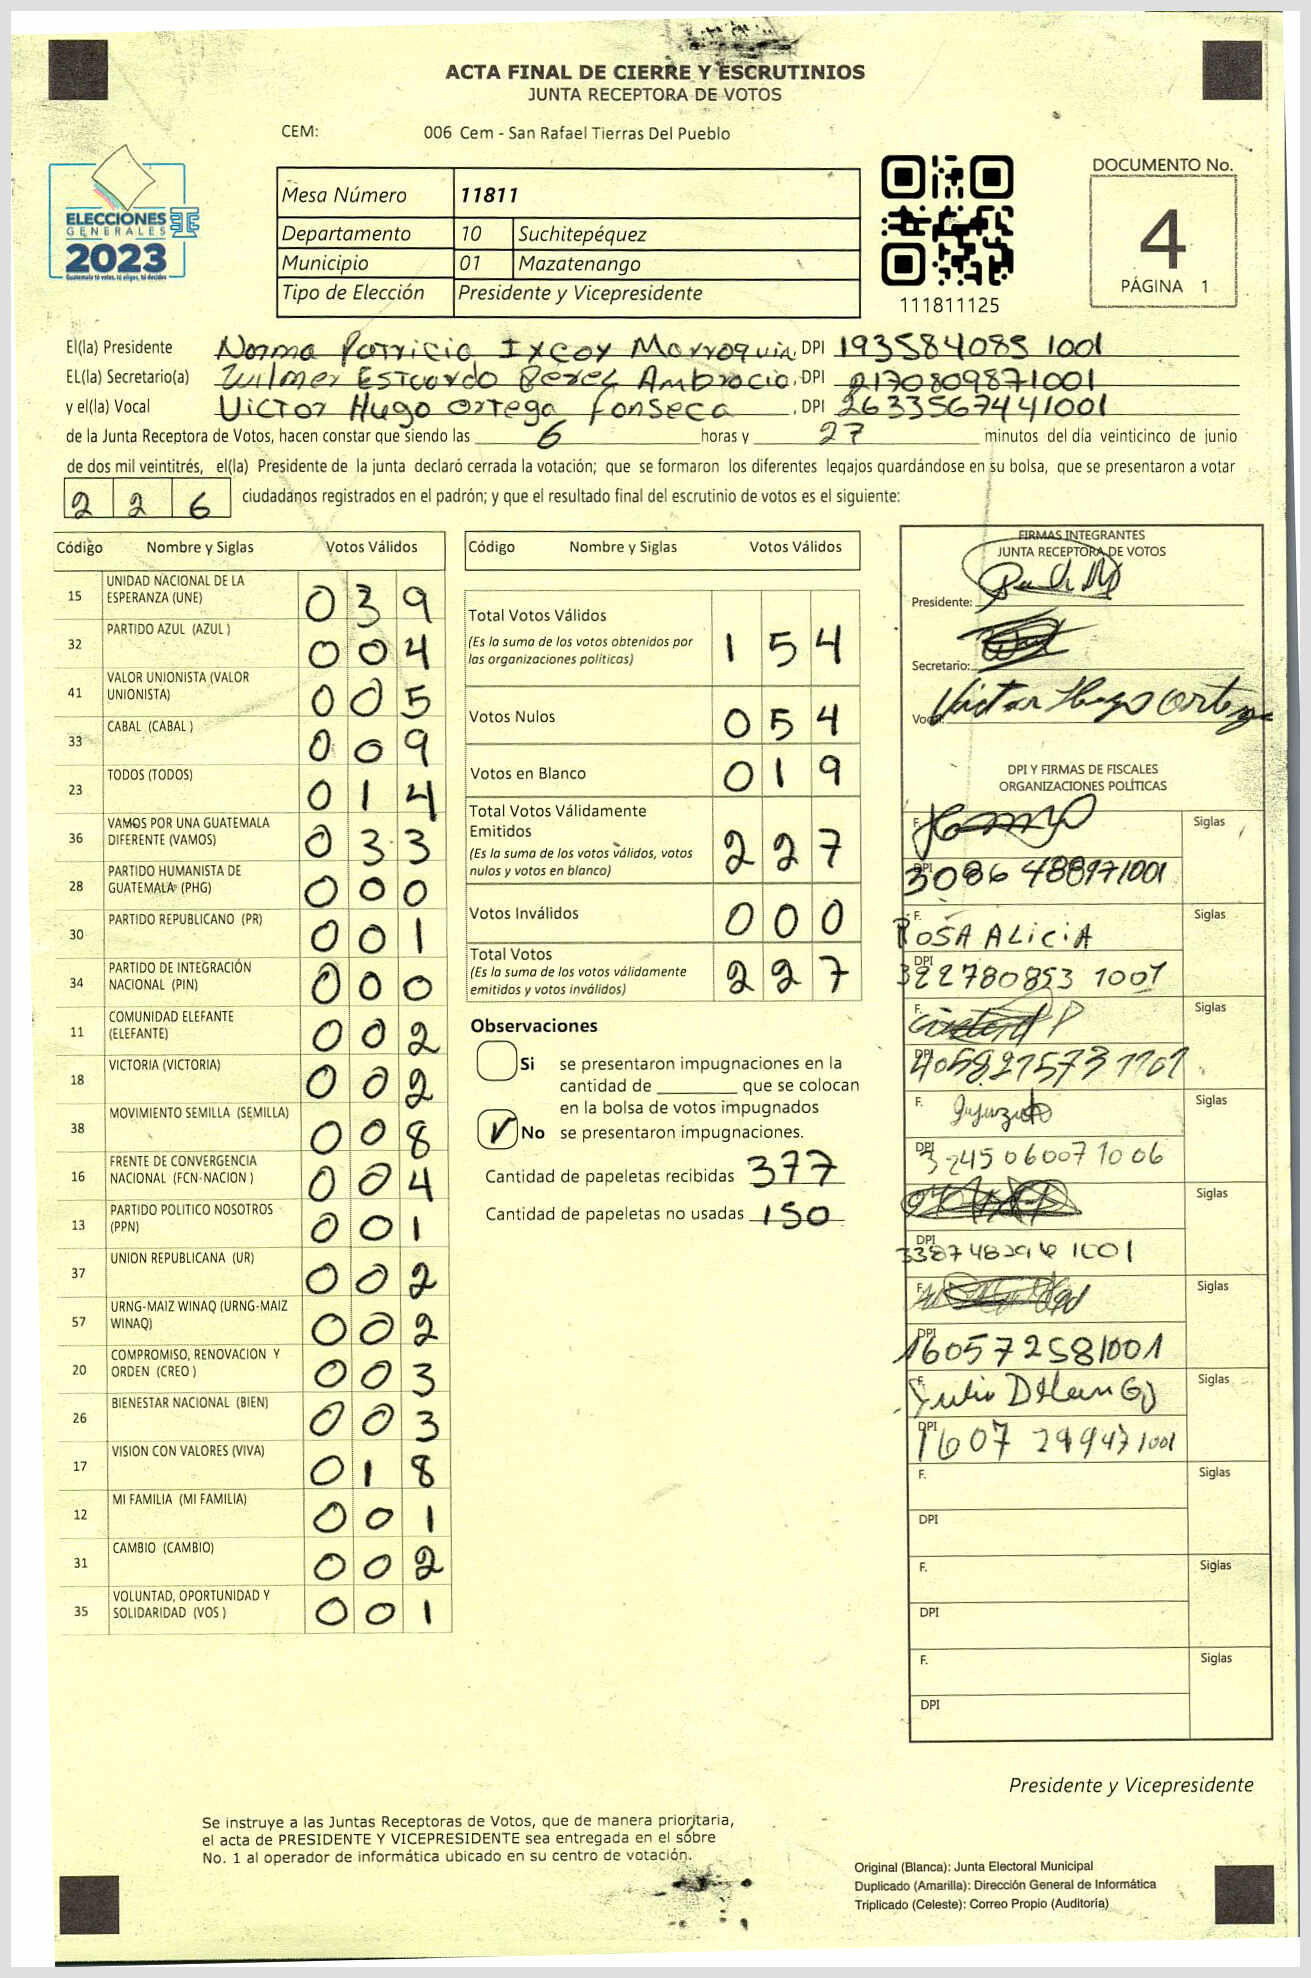 ACTA FINAL DE CIERRE Y ESCRUTINIOS
JUNTA RECEPTORA DE VOTOS
CEM: 006 Cem - San Rafael Tierras Del Pueblo
ELECCIONES
GENERALES
2023
Guatemala tú votas, tú eliges, tú decides
Mesa Número 11811
Departamento 10 Suchitepéquez
Municipio 01 Mazatenango
Tipo de Elección Presidente y Vicepresidente
111811125
DOCUMENTO No.
4
PÁGINA 1
El(la) Presidente Norma Patricia Ixcoy Marroquin, DPI 193584085 1001
EL(la) Secretario(a) Wilmer Estuardo Pérez Ambrocio, DPI 2170809871001
y el(la) Vocal Victor Hugo Ortega Fonseca, DPI 2633567441001
de la Junta Receptora de Votos, hacen constar que siendo las 6 horas y 27 minutos del día veinticinco de junio
de dos mil veintitrés, el(la) Presidente de la junta declaró cerrada la votación; que se formaron los diferentes legajos guardándose en su bolsa, que se presentaron a votar
226 ciudadanos registrados en el padrón; y que el resultado final del escrutinio de votos es el siguiente:
Código Nombre y Siglas Votos Válidos
15 UNIDAD NACIONAL DE LA ESPERANZA (UNE) 039
32 PARTIDO AZUL (AZUL ) 004
41 VALOR UNIONISTA (VALOR UNIONISTA) 005
33 CABAL (CABAL ) 009
23 TODOS (TODOS) 014
36 VAMOS POR UNA GUATEMALA DIFERENTE (VAMOS) 033
28 PARTIDO HUMANISTA DE GUATEMALA (PHG) 000
30 PARTIDO REPUBLICANO (PR) 001
34 PARTIDO DE INTEGRACIÓN NACIONAL (PIN) 000
11 COMUNIDAD ELEFANTE (ELEFANTE) 002
18 VICTORIA (VICTORIA) 002
38 MOVIMIENTO SEMILLA (SEMILLA) 008
16 FRENTE DE CONVERGENCIA NACIONAL (FCN-NACION ) 004
13 PARTIDO POLITICO NOSOTROS (PPN) 001
37 UNION REPUBLICANA (UR) 002
57 URNG-MAIZ WINAQ (URNG-MAIZ WINAQ) 002
20 COMPROMISO, RENOVACION Y ORDEN (CREO ) 003
26 BIENESTAR NACIONAL (BIEN) 003
17 VISION CON VALORES (VIVA) 018
12 MI FAMILIA (MI FAMILIA) 001
31 CAMBIO (CAMBIO) 002
35 VOLUNTAD, OPORTUNIDAD Y SOLIDARIDAD (VOS ) 001
Código Nombre y Siglas Votos Válidos
Total Votos Válidos 154
(Es la suma de los votos obtenidos por
las organizaciones políticas)
Votos Nulos 054
Votos en Blanco 019
Total Votos Válidamente
Emitidos 227
(Es la suma de los votos válidos, votos
nulos y votos en blanco)
Votos Inválidos 000
Total Votos 227
(Es la suma de los votos válidamente
emitidos y votos inválidos)
Observaciones
Si se presentaron impugnaciones en la
cantidad de ________ que se colocan
en la bolsa de votos impugnados
No se presentaron impugnaciones.
Cantidad de papeletas recibidas 377
Cantidad de papeletas no usadas 150
FIRMAS INTEGRANTES
JUNTA RECEPTORA DE VOTOS
Presidente:
Secretario:
Vocal: Victor Hugo Ortega
DPI Y FIRMAS DE FISCALES
ORGANIZACIONES POLÍTICAS
F. Siglas
DPI 3086488971001
F. ROSA ALICIA Siglas
DPI 322780853 1001
F. Siglas
DPI
F. Siglas
DPI 3245060071006
F. Siglas
DPI
F. Siglas
DPI 160572581001
F. Siglas
DPI
F. Siglas
DPI
F. Siglas
DPI
F. Siglas
DPI
Presidente y Vicepresidente
Se instruye a las Juntas Receptoras de Votos, que de manera prioritaria,
el acta de PRESIDENTE Y VICEPRESIDENTE sea entregada en el sobre
No. 1 al operador de informática ubicado en su centro de votación.
Original (Blanca): Junta Electoral Municipal
Duplicado (Amarilla): Dirección General de Informática
Triplicado (Celeste): Correo Propio (Auditoría)